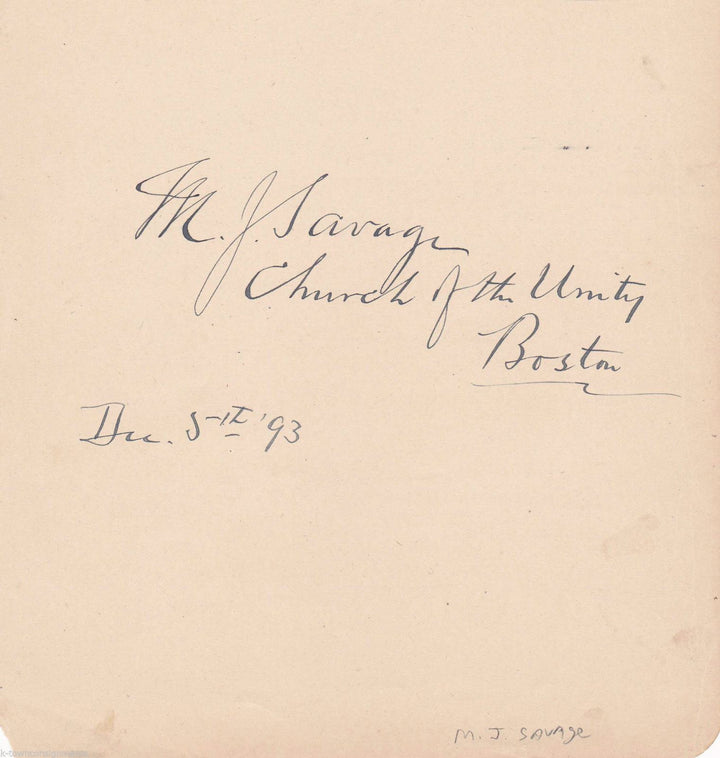 M. J. Savage
Church of the Unity
Boston
Dec. 5th '93
M. J. SAVAGE